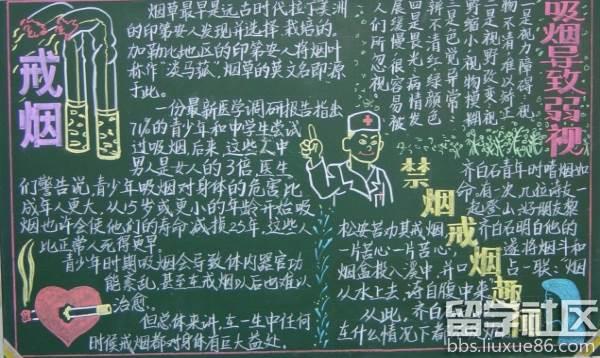 戒烟
烟草最早是远古时代拉丁美洲
的印第安人发现并选择、栽培的。
加勒比地区的印第安人将烟叶
称作“淡马菰”，烟草的英文名即源
于此。
一份最新医学调研报告指出
71%的青少年和中学生尝试
过吸烟后来，这些人中
男人是女人的3倍，医生
们警告说，青少年吸烟对身体的危害比
成年人更大，从15岁或更小的年龄开始吸
烟也许会使他们的寿命减损25年，这些人
比正常人死得更早
青少年时期吸烟会导致体内器官功
能紊乱，甚至在戒烟以后也难以
治愈。
但总体来讲，在一生中任何
时候戒烟都对身体有巨大益处。
吸烟导致弱视
一是视力障碍，视
物不清难以矫正
二是视野改变，视
野缩小视物模糊
三是色觉异常
辨不清红绿颜色
四是畏光，病情发
展缓慢，很容易被
人们所忽视
禁烟戒烟趣
齐白石青年时嗜烟如
命，有一次，几位诗友
一起登山，好朋友黎
松安苦力其戒烟，齐白石明白他的
一片苦心，遂将烟斗和
烟盒投入溪中，并口占一联：“烟
从水上去，诗自腹中来
从此，齐白石
在什么情况下都
留学社区
bbs.liuxue86.com